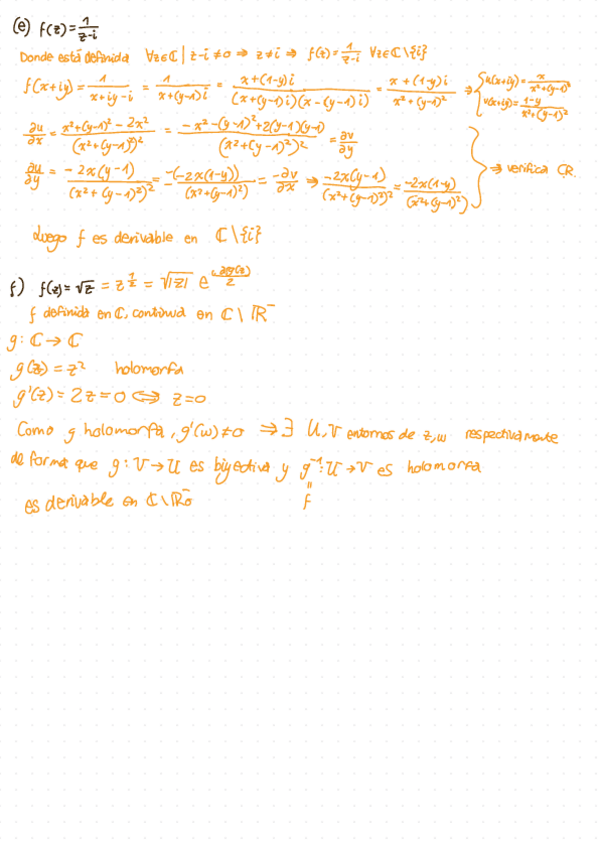 (e) f(z) = 1/(z-i)
Donde está definida ∀z∈ℂ | z-i≠0 ⇒ z≠i ⇒ f(z) = 1/(z-i) ∀z∈ℂ\{i}
f(x+iy) = 1/(x+iy-i) = 1/(x+(y-1)i) = (x+(1-y)i)/((x+(y-1)i)(x-(y-1)i)) = (x+(1-y)i)/(x²+(y-1)²) ⇒ { u(x+iy) = x/(x²+(y-1)²) v(x+iy) = (1-y)/(x²+(y-1)²)
∂u/∂x = (x²+(y-1)²-2x²)/(x²+(y-1)²)² = (-x²-(y-1)²+2(y-1)(y-1))/(x²+(y-1)²)² = ∂v/∂y
∂u/∂y = -2x(y-1)/(x²+(y-1)²)² = -(-2x(1-y))/(x²+(y-1)²) = -∂v/∂x ⇒ -2x(y-1)/(x²+(y-1)²)² = -2x(1-y)/(x²+(y-1)²) } ⇒ verifica CR.
Luego f es derivable en ℂ\{i}
f) f(z) = √z = z^(1/2) = √|z| e^(i arg(z)/2)
f definida en ℂ, continua en ℂ\ℝ⁻
g: ℂ → ℂ
g(z) = z² holomorfa
g'(z) = 2z = 0 ⇔ z=0
Como g holomorfa, g'(w)≠0 ⇒ ∃ U,V entornos de z,w respectivamente
de forma que g: V→U es biyectiva y g⁻¹: U→V es holomorfa
=
es derivable en ℂ\ℝ₀⁻ f